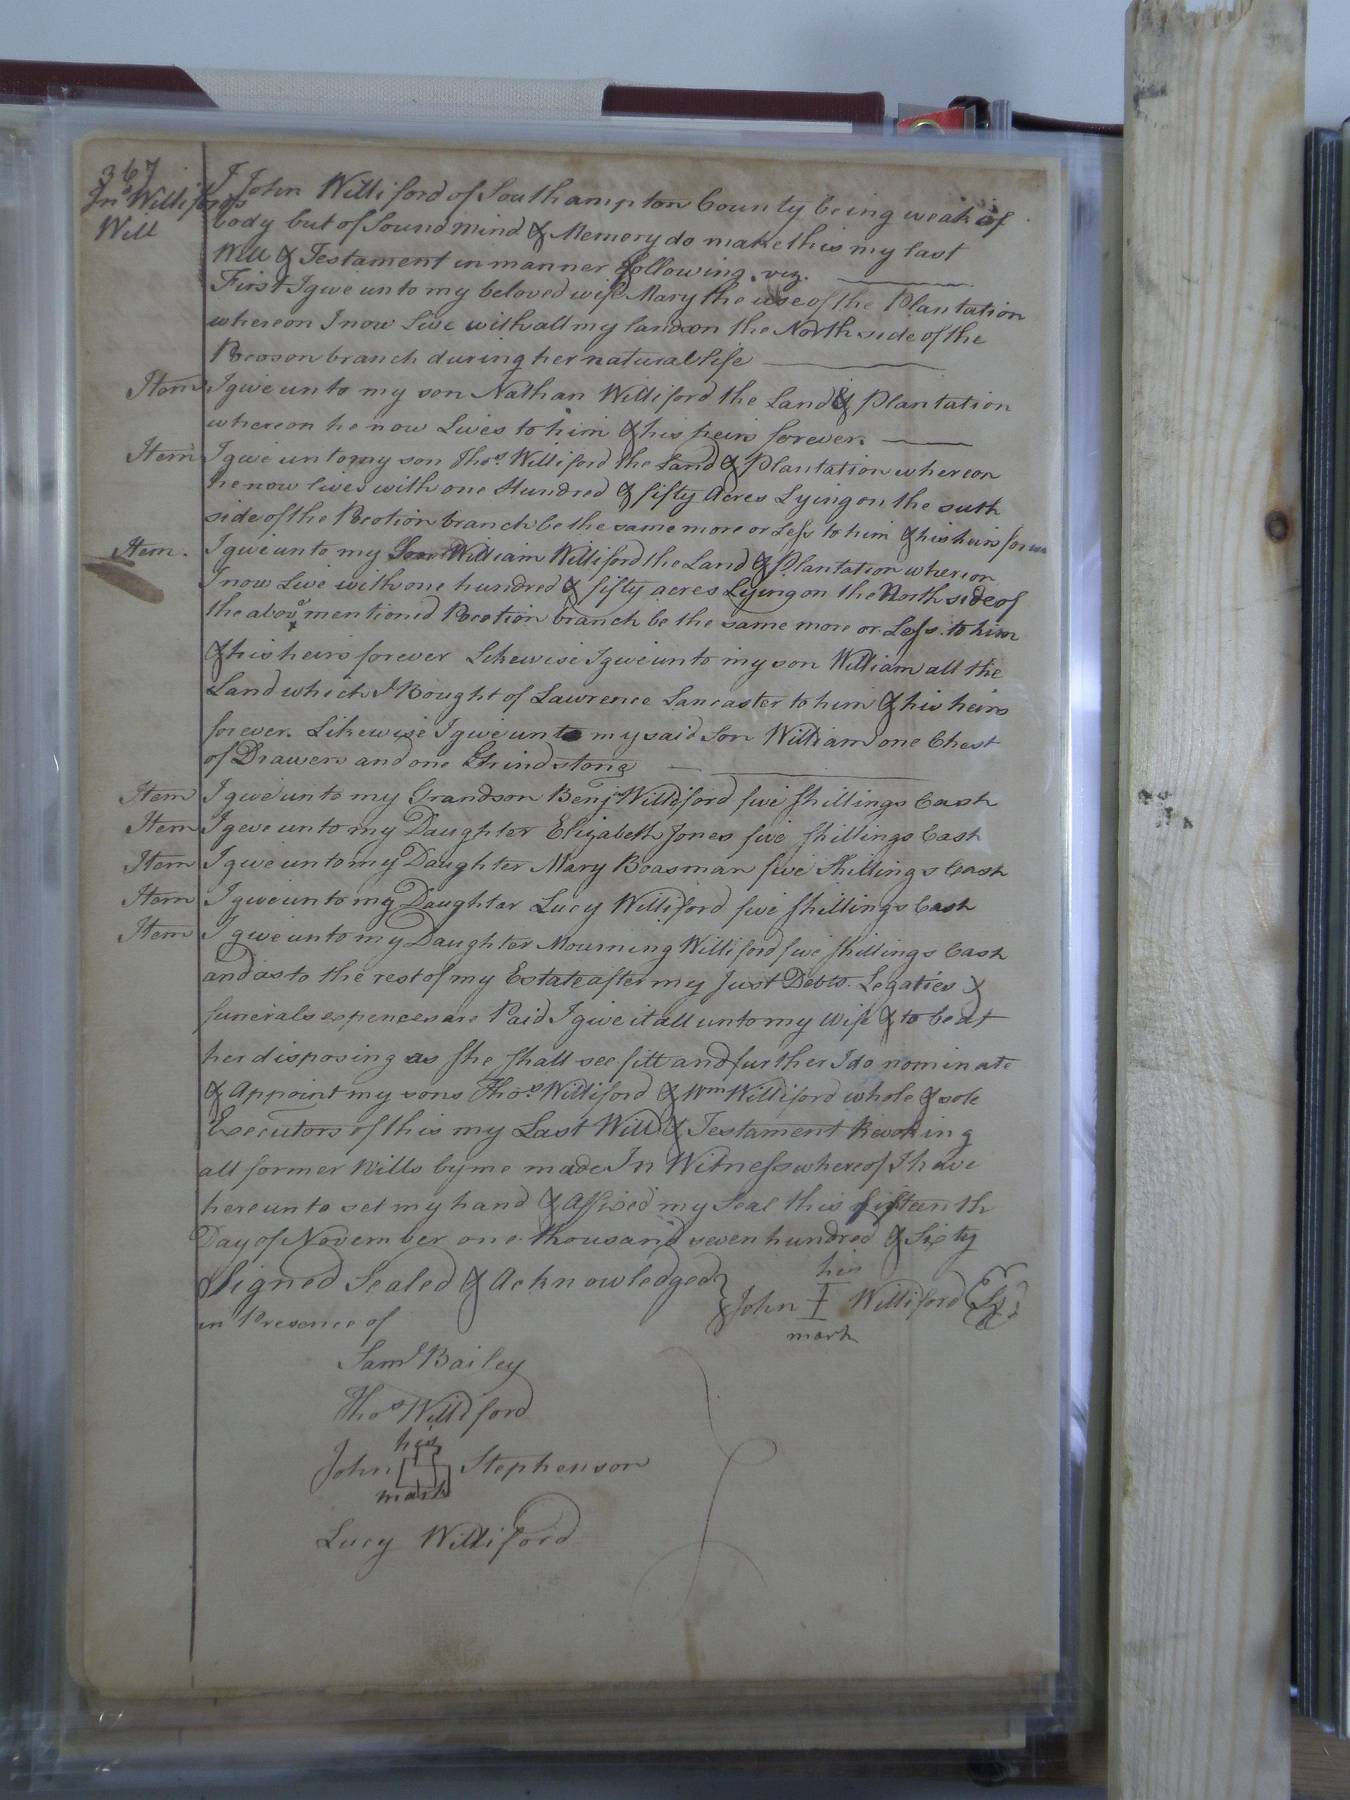 367
Jno. Williford's
Will
I John Williford of Southampton County being weak of
body but of Sound mind & Memory do make this my last
Will & Testament in manner following. viz.
First I give unto my beloved wife Mary the use of the Plantation
whereon I now Live with all my land on the North side of the
Pocoson branch during her natural life
Item I give unto my son Nathan Williford the Land & Plantation
whereon he now Lives to him & his heirs forever.
Item I give unto my son Thos. Williford the Land & Plantation whereon
he now lives with one Hundred & fifty Acres Lying on the suth
side of the Pocotion branch be the same more or Less to him & his heirs forever
Item. I give unto my Son William Williford the Land & Plantation whereon
I now Live with one hundred & fifty acres Lying on the North side of
the above mentioned Pocotion branch be the same more or Less. to him
& his heirs forever Likewise I give unto my son William all the
Land which I Bought of Lawrence Lancaster to him & his heirs
forever. Likewise I give unto my said Son William one Chest
of Drawers and one Grindstone
Item I give unto my Grandson Benjn Williford five shillings Cash
Item I geve unto my Daughter Elizabeth Jones five shillings Cash
Item I give unto my Daughter Mary Boasman five Shillings Cash
Item I give unto my Daughter Lucy Williford five shillings Cash
Item I give unto my Daughter Mourning Williford five shillings Cash
and as to the rest of my Estate after my Just Debts. Legaties &
funerals expences are Paid I give it all unto my Wife & to be at
her disposing as she shall see fitt and further I do nominate
& Appoint my sons Thos. Williford & Wm Williford whole & sole
Executors of this my Last Will & Testament Revoking
all former Wills by me made In Witness whereof I have
hereunto set my hand & Affixed my Seal this fifteenth
Day of November one thousand seven hundred & Sixty
Signed Sealed & Acknowledged
in Presence of
his
John I Williford LS
mark
Saml Bailey
Thos Williford
his
John Stephenson
mark
Lucy Williford